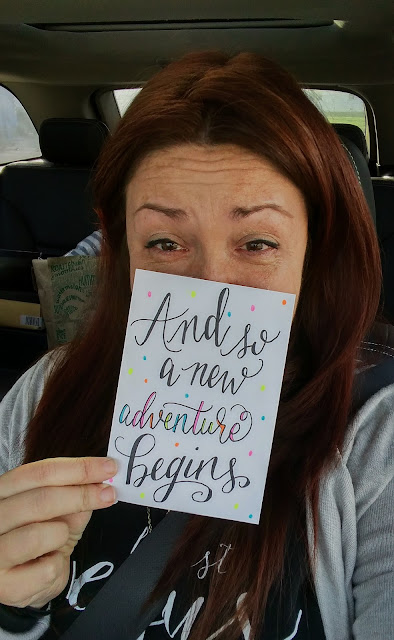 And so
a new
adventure
begins.
st